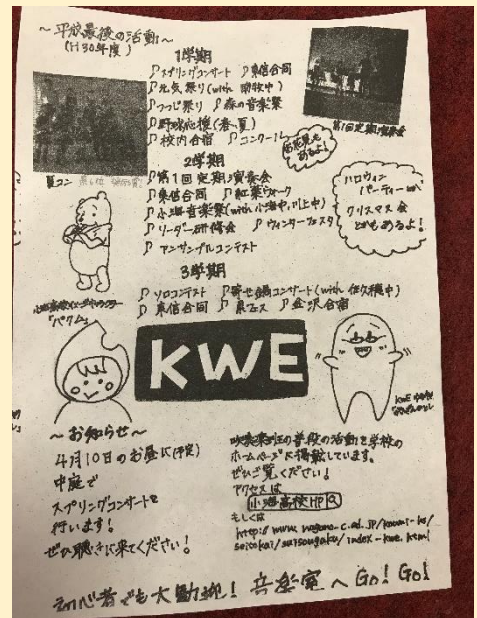 ～平成最後の活動～
(H30年度)
1学期
♪スプリングコンサート ♪東信合同
♪元気祭り(with 南牧中)
♪つつじ祭り ♪森の音楽祭
♪野球応援(春、夏)
♪校内合宿 ♪コンクール
第1回定期演奏会
もあるよ!
夏コン
2学期
♪第1回定期演奏会
♪東信合同 ♪紅葉ウォーク
♪小海音楽祭(with 小海中,川上中)
♪リーダー研修会 ♪ウィンターフェスタ
♪アンサンブルコンテスト
ハロウィン
パーティーや、
クリスマス会
とかもあるよ!
3学期
♪ソロコンテスト ♪寄せ鍋コンサート(with 佐久穂中)
♪東信合同 ♪金沢合宿
KWE
～お知らせ～
4月10日のお昼に(予定)
中庭で
スプリングコンサートを
行います!
ぜひ聴きに来てください!
吹奏楽班の普段の活動を学校の
ホームページに掲載しています。
ぜひご覧ください!
アクセスは
小海高校HP
もしくは
http://www.nagano-c.ed.jp/koumi-hs/
seitokai/suisougaku/index-kwe.html
初心者でも大歓迎! 音楽室へGo! Go!